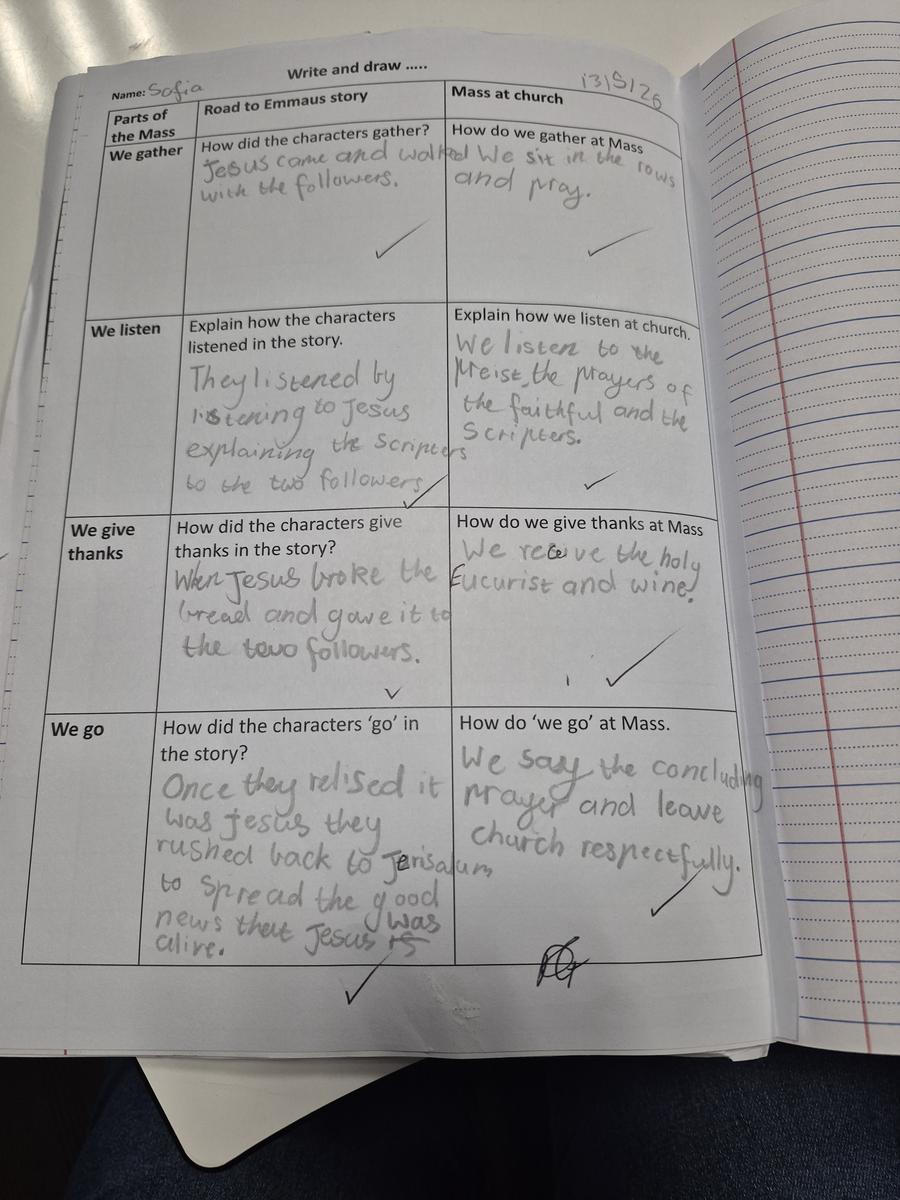 Write and draw .....
Name: Sofia
13/5/26
Parts of
the Mass
Road to Emmaus story
Mass at church
We gather
How did the characters gather?
Jesus came and walked
with the followers.
How do we gather at Mass
We sit in the rows
and pray.
We listen
Explain how the characters
listened in the story.
They listened by
listening to Jesus
explaining the scripters
to the two followers
Explain how we listen at church.
We listen to the
preist, the prayers of
the faithful and the
Scripters.
We give
thanks
How did the characters give
thanks in the story?
When Jesus broke the
bread and gave it to
the two followers.
How do we give thanks at Mass
We receive the holy
Eucurist and wine.
We go
How did the characters ‘go’ in
the story?
Once they relised it
was Jesus they
rushed back to Jerisalum
to spread the good
news that Jesus was
alive.
How do ‘we go’ at Mass.
We say the concluding
prayer and leave
church respectfully.